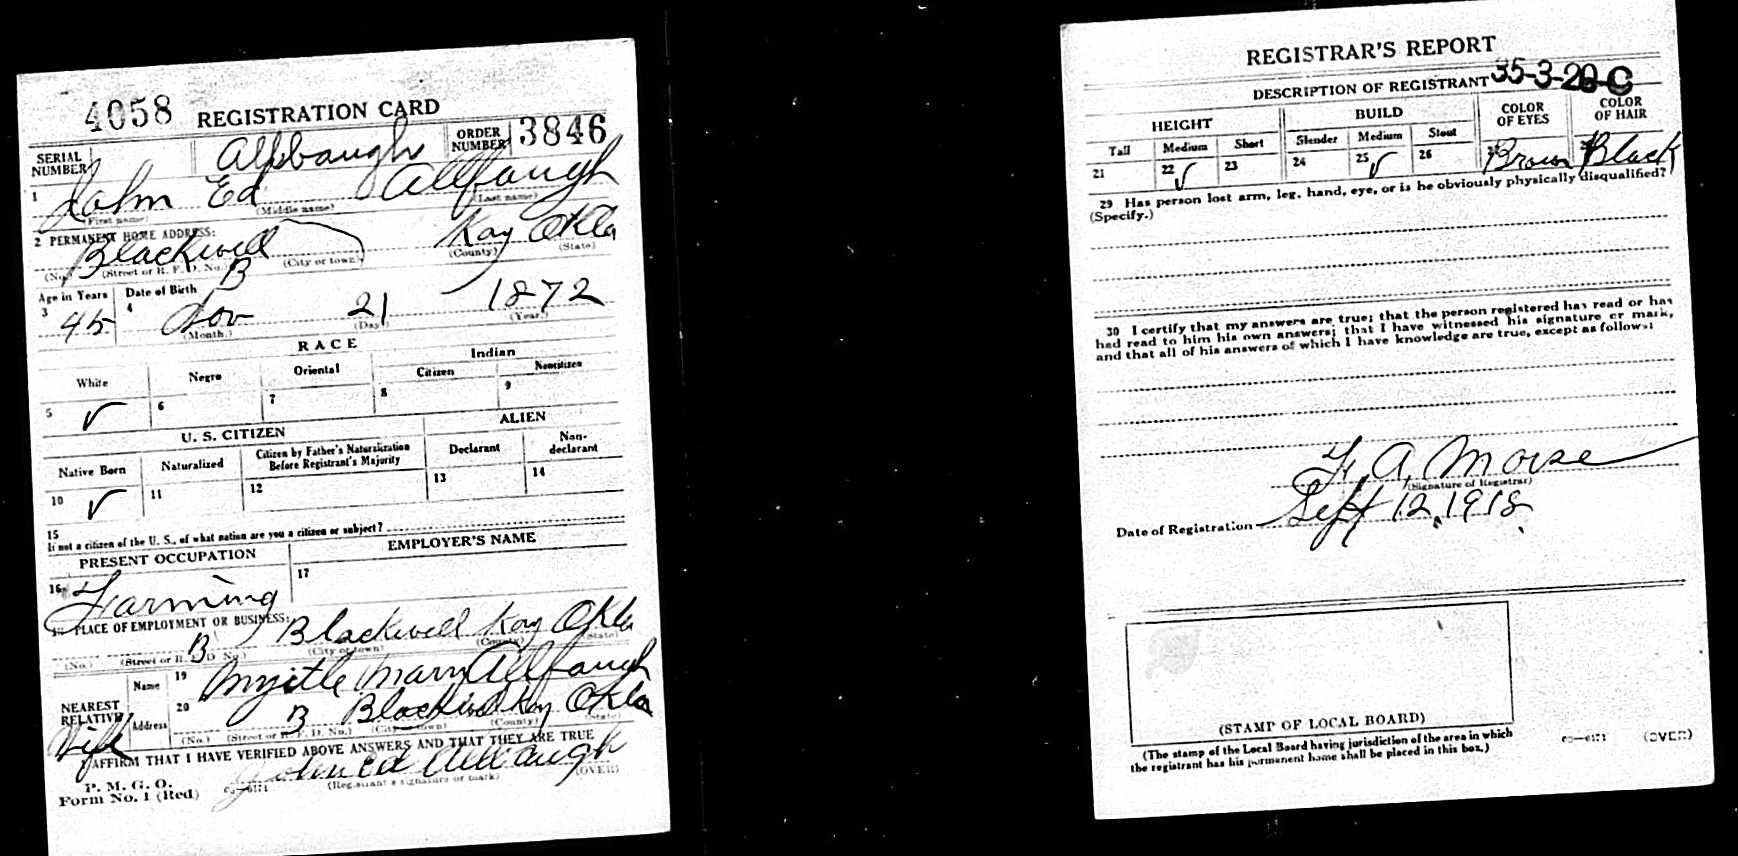 4058 REGISTRATION CARD
SERIAL NUMBER
Allbaugh
ORDER NUMBER 3846
1 John Ed Allbaugh
(First name) (Middle name) (Last name)
2 PERMANENT HOME ADDRESS:
Blackwell Kay Okla
(No.) (Street or R. F. D. No.) (City or town) (County) (State)
B
Age in Years Date of Birth
3 45 4 Nov 21 1872
(Month.) (Day) (Year.)
RACE
White Negro Oriental Indian
Citizen Noncitizen
5 ✓ 6 7 8 9
U. S. CITIZEN ALIEN
Native Born Naturalized Citizen by Father's Naturalization Before Registrant's Majority Declarant Non-declarant
10 ✓ 11 12 13 14
15
If not a citizen of the U. S., of what nation are you a citizen or subject?
PRESENT OCCUPATION EMPLOYER'S NAME
16 Farming 17
18 PLACE OF EMPLOYMENT OR BUSINESS:
B Blackwell Kay Okla
(No.) (Street or R. F. D. No.) (City or town) (County) (State)
NEAREST RELATIVE
Name 19 Myrtle Mary Allbaugh
Address 20 B Blackwell Kay Okla
(No.) (Street or R. F. D. No.) (City or town) (County) (State)
Wife
I AFFIRM THAT I HAVE VERIFIED ABOVE ANSWERS AND THAT THEY ARE TRUE
P. M. G. O.
Form No. 1 (Red)
John Ed Allbaugh
(Registrant's signature or mark) (OVER)
REGISTRAR'S REPORT
35-3-20-C
DESCRIPTION OF REGISTRANT
HEIGHT BUILD COLOR OF EYES COLOR OF HAIR
Tall Medium Short Slender Medium Stout
21 22 ✓ 23 24 25 ✓ 26 27 Brown 28 Black
29 Has person lost arm, leg, hand, eye, or is he obviously physically disqualified?
(Specify.)
30 I certify that my answers are true; that the person registered has read or has
had read to him his own answers; that I have witnessed his signature or mark,
and that all of his answers of which I have knowledge are true, except as follows:
F. A. Morse
(Signature of Registrar)
Date of Registration Sept 12, 1918
(STAMP OF LOCAL BOARD)
(The stamp of the Local Board having jurisdiction of the area in which
the registrant has his permanent home shall be placed in this box.)
(OVER)